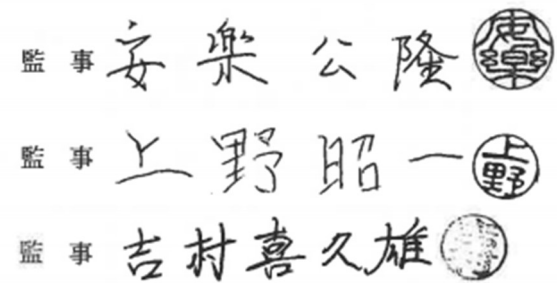 監事 安楽公隆 安樂
監事 上野昭一 上野
監事 吉村喜久雄